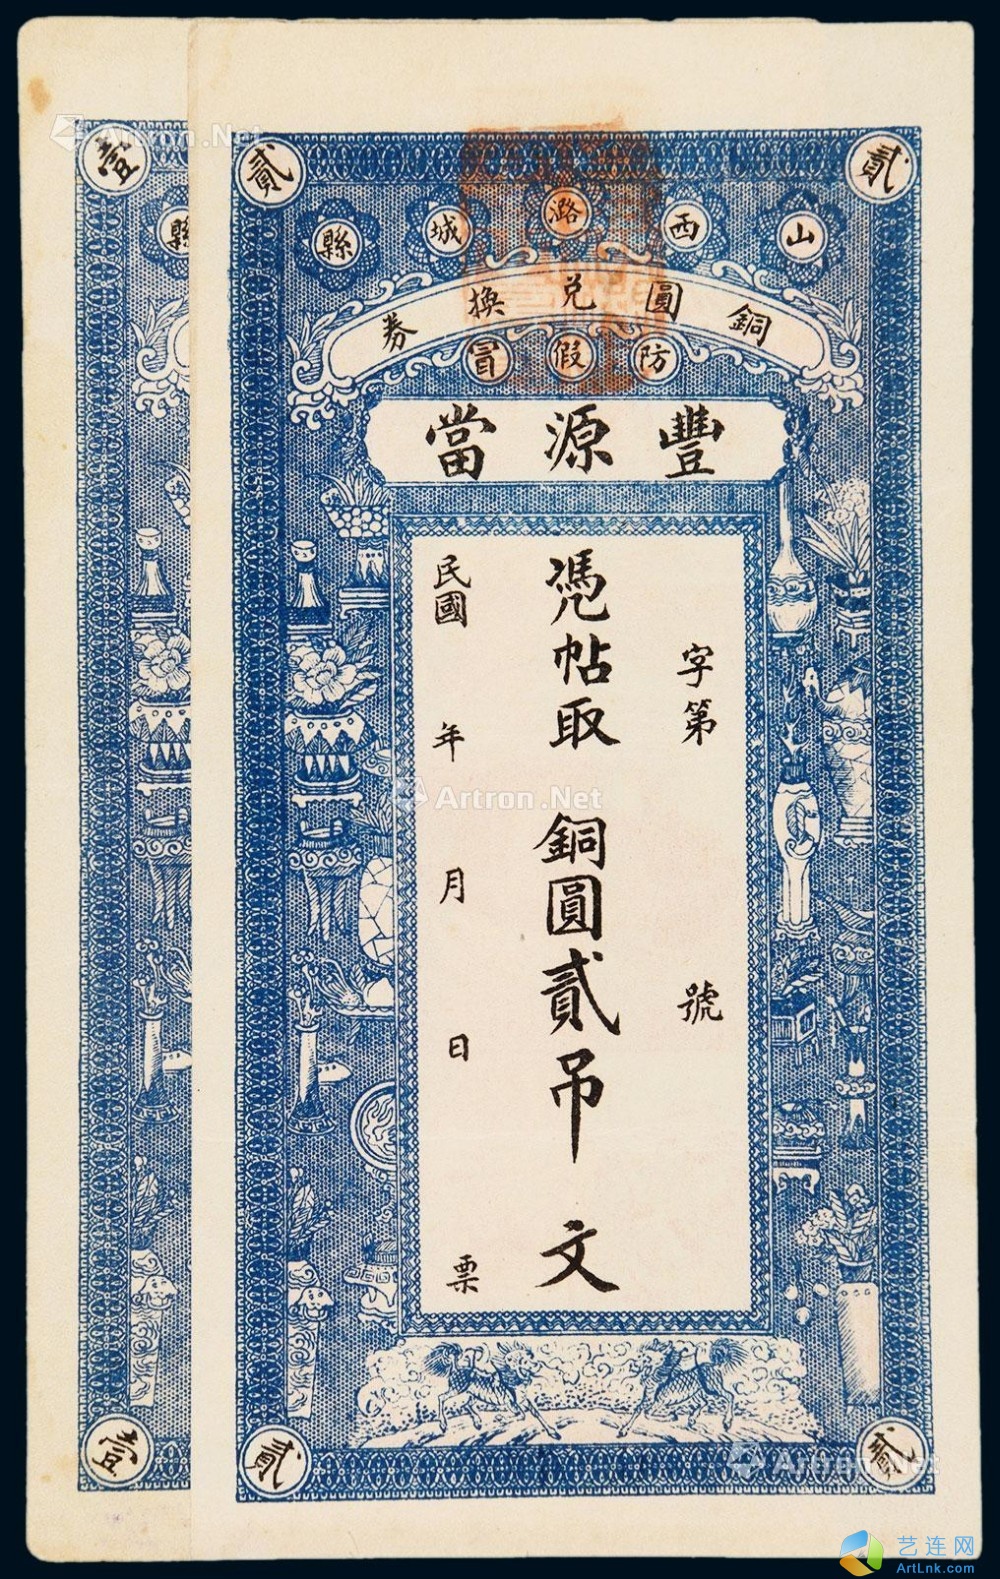 壹
縣
壹
貳
貳
山西潞城縣
銅圓兌換券
防假冒
豐源當
字第 號
憑帖取 銅圓貳吊 文
民國 年 月 日 票
貳
貳
Artron.Net
Artron.Net
Artron.Net
艺连网
ArtLnk.com